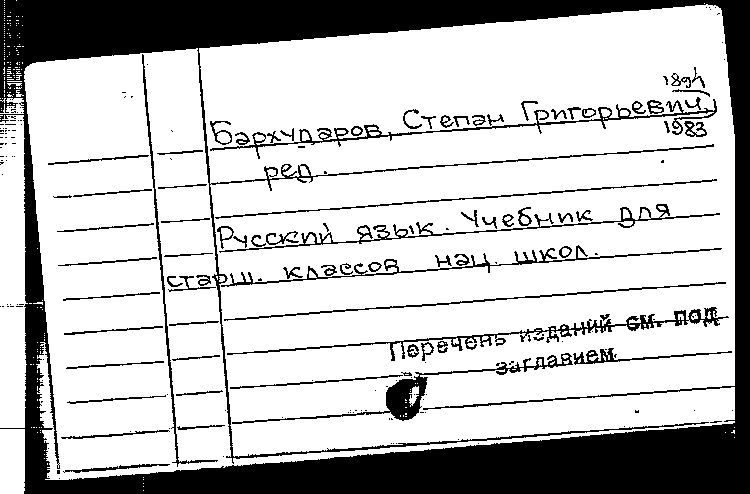 1894
Бархударов, Степан Григорьевич,
1983
ред.
Русский язык. Учебник для
старш. классов нац. школ.
Перечень изданий см. под
заглавием